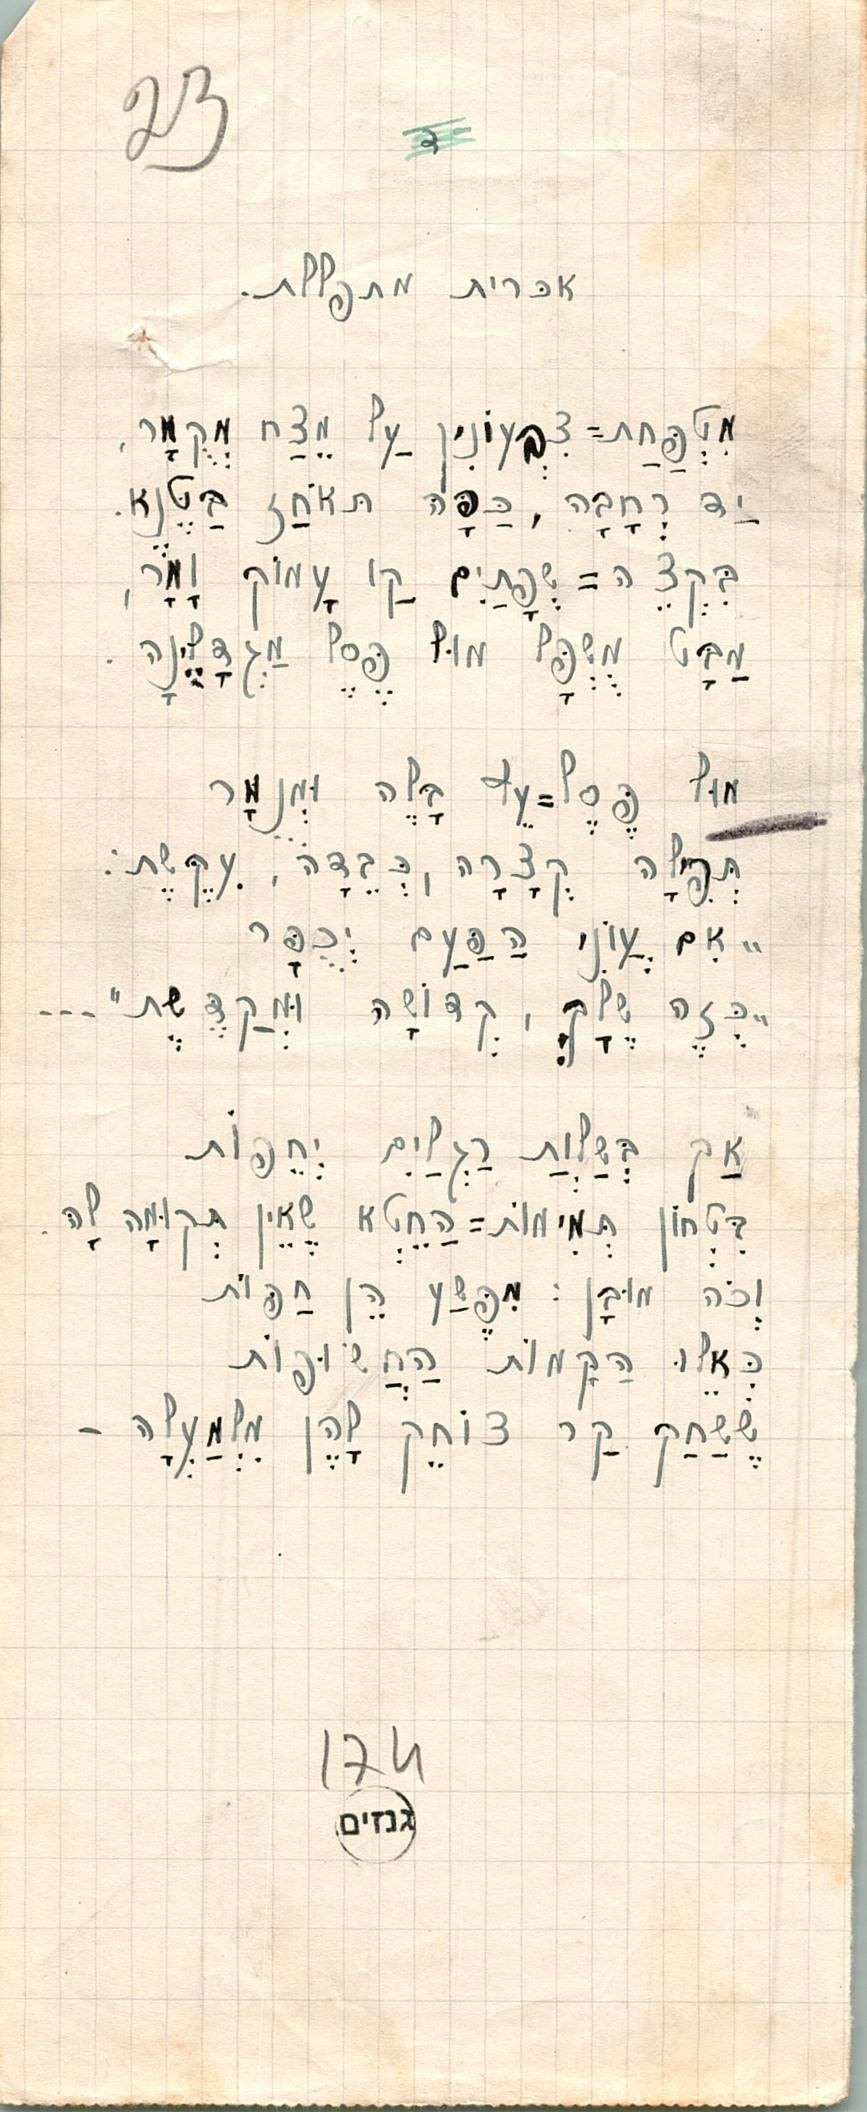 23
ד
אכרית מתפללת.
מִטְפַּחַת=צִבְעוֹנִין עַל מֵצַח מְקֻמָּר,
יַד רְחָבָה, כַּפָּהּ תֹּאחַז בַּטֶּנֶא.
בִּקְצֵה=שְׂפָתַיִם קַו עָמוֹק וָמָר,
מַבָּט מֻשְׁפָּל מוּל פֶּסֶל מַגְדָּלֶינָה.
מוּל פֶּסֶל=עֵץ בָּלֶה וּמְנֻמָּר
תְּפִלָּה קְצָרָה, כְּבֵדָה, עִקֶּשֶׁת:
„אִם עֲוֹנִי הַפַּעַם יְכֻפַּר
„כְּזֶה שֶׁלָּךְ, קְדוֹשָׁה וּמְקֻדֶּשֶׁת"---
אַךְ בְּשַׁלְוַת רַגְלַיִם יְחֵפוֹת
בִּטְחוֹן תְּמִימוֹת=הַחֵטְא שֶׁאֵין תְּקוּמָה לָהּ.
וְכֹה מוּבָן: מִפֶּשַׁע הֵן חַפּוֹת
כְּאִלּוּ הַקָּמוֹת הַחֲשׂוּפוֹת
שֶׁשַּׁחַק קַר צוֹחֵק לָהֶן מִלְמַעְלָה –
174
גנזים